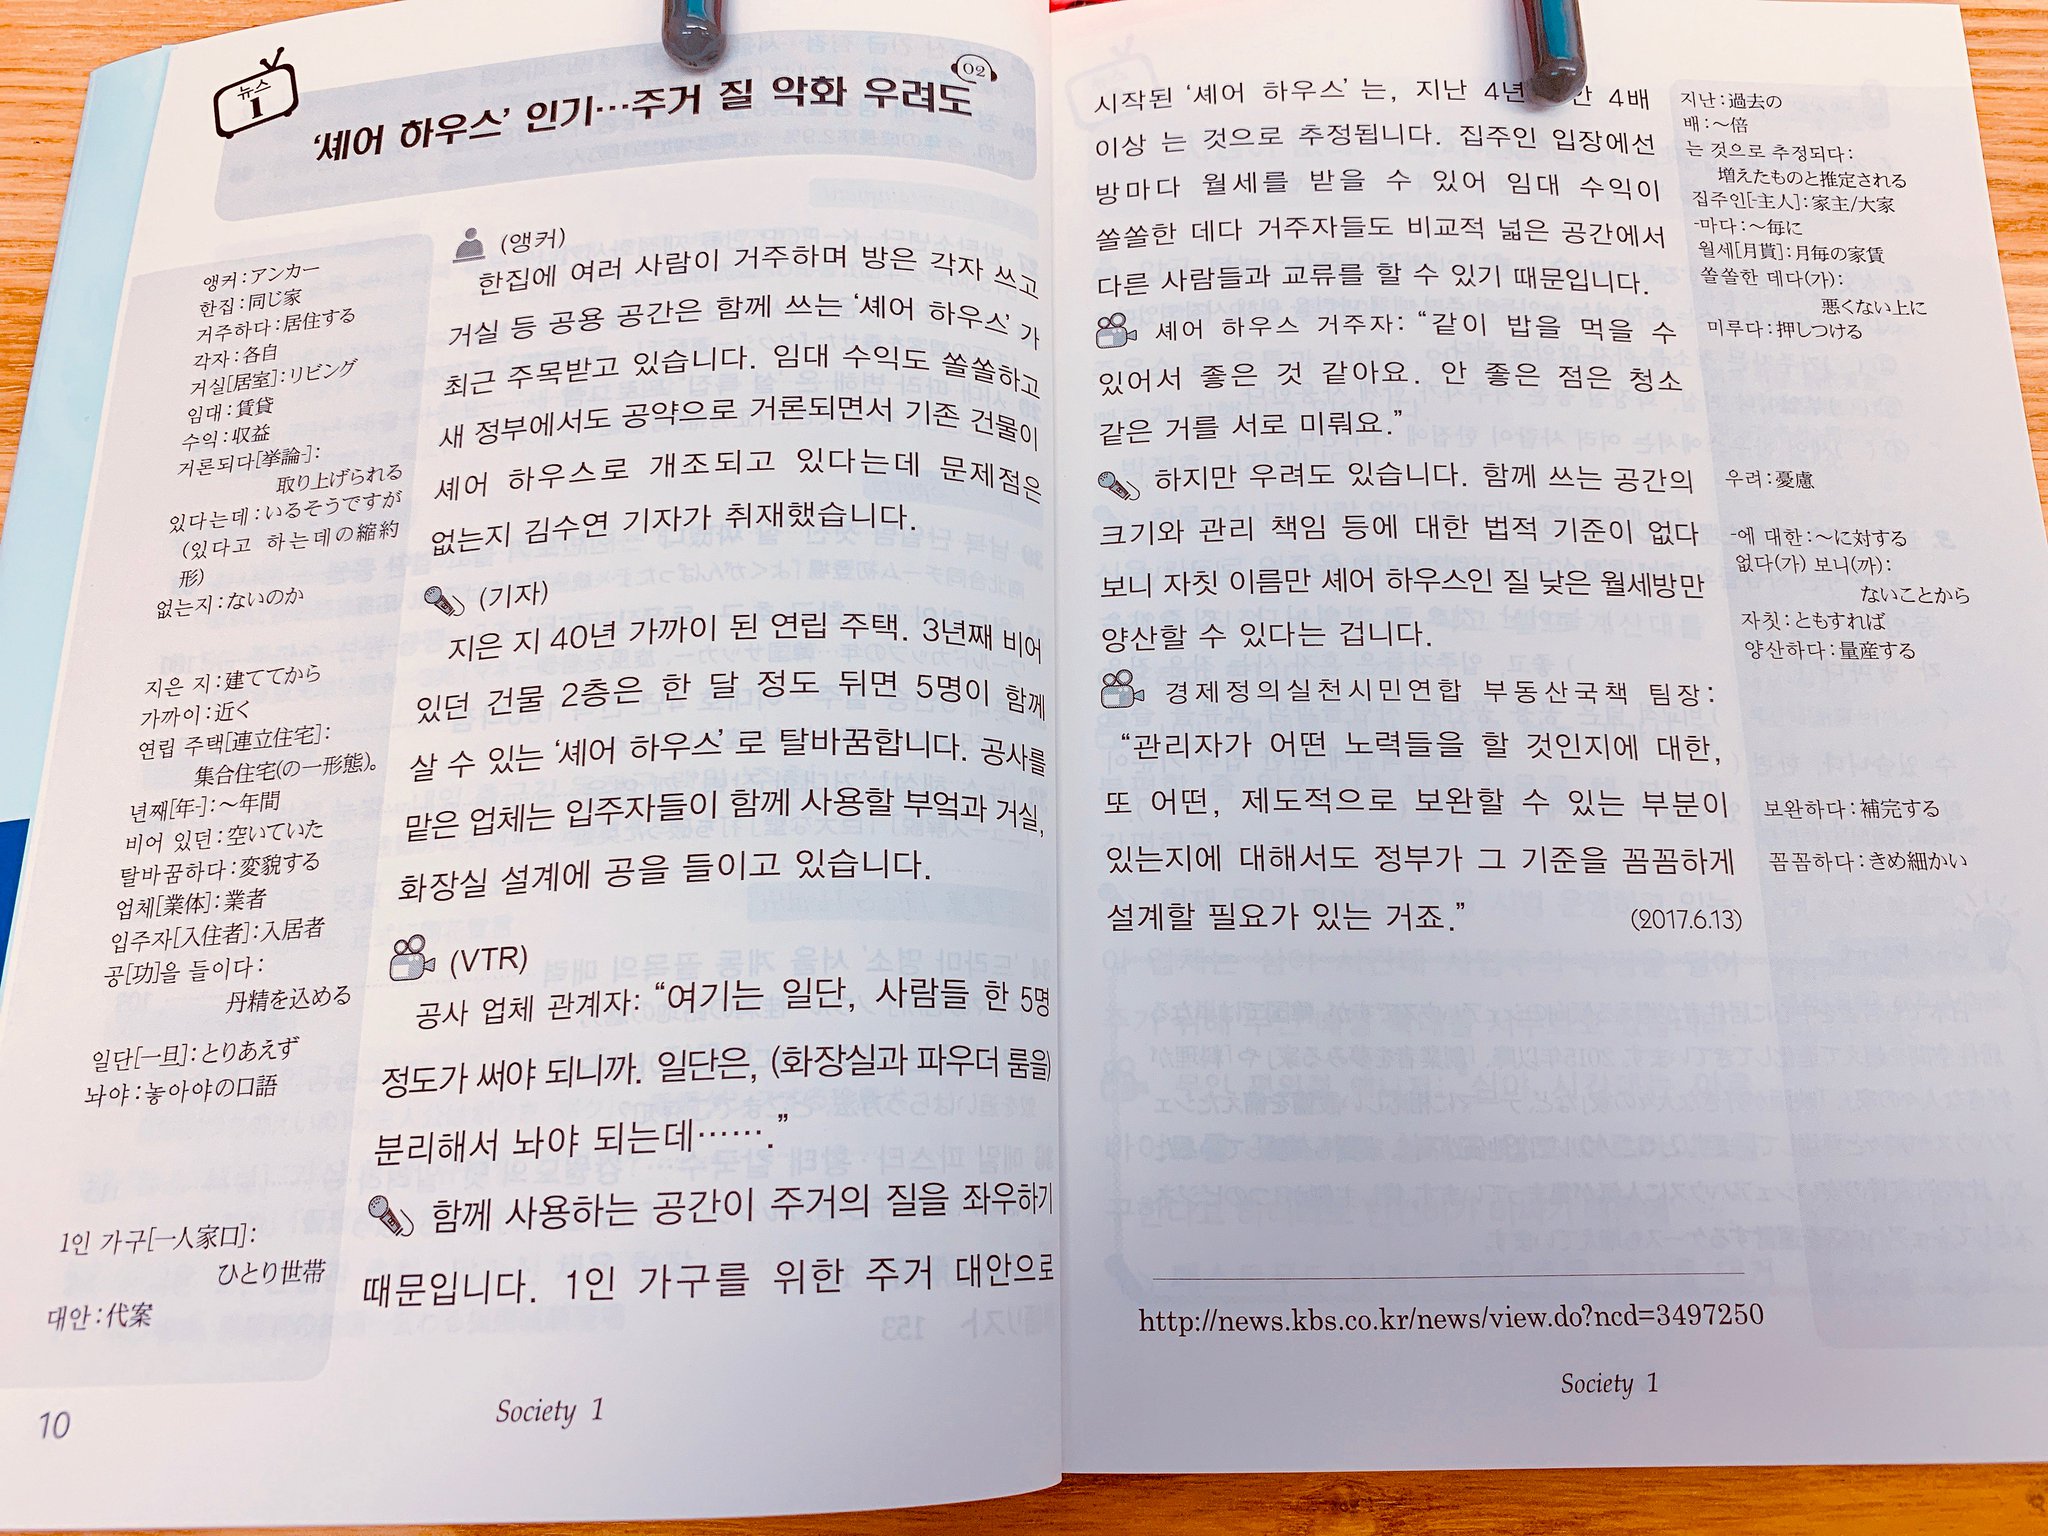 뉴스
1
02
‘셰어 하우스’ 인기…주거 질 악화 우려도
앵커:アンカー
한집:同じ家
거주하다:居住する
각자:各自
거실[居室]:リビング
임대:賃貸
수익:収益
거론되다[挙論-]:
取り上げられる
있다는데:いるそうですが
(있다고 하는데の縮約
形)
없는지:ないのか
지은 지:建ててから
가까이:近く
연립 주택[連立住宅]:
集合住宅(の一形態)。
년째[年-]:〜年間
비어 있던:空いていた
탈바꿈하다:変貌する
업체[業体]:業者
입주자[入住者]:入居者
공[功]을 들이다:
丹精を込める
일단[一旦]:とりあえず
놔야:놓아야の口語
1인 가구[一人家口]:
ひとり世帯
대안:代案
(앵커)
한집에 여러 사람이 거주하며 방은 각자 쓰고
거실 등 공용 공간은 함께 쓰는 ‘셰어 하우스’ 가
최근 주목받고 있습니다. 임대 수익도 쏠쏠하고
새 정부에서도 공약으로 거론되면서 기존 건물이
셰어 하우스로 개조되고 있다는데 문제점은
없는지 김수연 기자가 취재했습니다.
(기자)
지은 지 40년 가까이 된 연립 주택. 3년째 비어
있던 건물 2층은 한 달 정도 뒤면 5명이 함께
살 수 있는 ‘셰어 하우스’ 로 탈바꿈합니다. 공사를
맡은 업체는 입주자들이 함께 사용할 부엌과 거실,
화장실 설계에 공을 들이고 있습니다.
(VTR)
공사 업체 관계자: “여기는 일단, 사람들 한 5명
정도가 써야 되니까. 일단은, (화장실과 파우더 룸을)
분리해서 놔야 되는데…….”
함께 사용하는 공간이 주거의 질을 좌우하기
때문입니다. 1인 가구를 위한 주거 대안으로
Society 1
10
시작된 ‘셰어 하우스’ 는, 지난 4년 안 4배
이상 는 것으로 추정됩니다. 집주인 입장에선
방마다 월세를 받을 수 있어 임대 수익이
쏠쏠한 데다 거주자들도 비교적 넓은 공간에서
다른 사람들과 교류를 할 수 있기 때문입니다.
셰어 하우스 거주자: “같이 밥을 먹을 수
있어서 좋은 것 같아요. 안 좋은 점은 청소
같은 거를 서로 미뤄요.”
하지만 우려도 있습니다. 함께 쓰는 공간의
크기와 관리 책임 등에 대한 법적 기준이 없다
보니 자칫 이름만 셰어 하우스인 질 낮은 월세방만
양산할 수 있다는 겁니다.
경제정의실천시민연합 부동산국책 팀장:
“관리자가 어떤 노력들을 할 것인지에 대한,
또 어떤, 제도적으로 보완할 수 있는 부분이
있는지에 대해서도 정부가 그 기준을 꼼꼼하게
설계할 필요가 있는 거죠.”
(2017.6.13)
지난:過去の
배:〜倍
는 것으로 추정되다:
増えたものと推定される
집주인[-主人]:家主/大家
-마다:〜毎に
월세[月貰]:月毎の家賃
쏠쏠한 데다(가):
悪くない上に
미루다:押しつける
우려:憂慮
-에 대한:〜に対する
없다(가) 보니(까):
ないことから
자칫:ともすれば
양산하다:量産する
보완하다:補完する
꼼꼼하다:きめ細かい
http://news.kbs.co.kr/news/view.do?ncd=3497250
Society 1